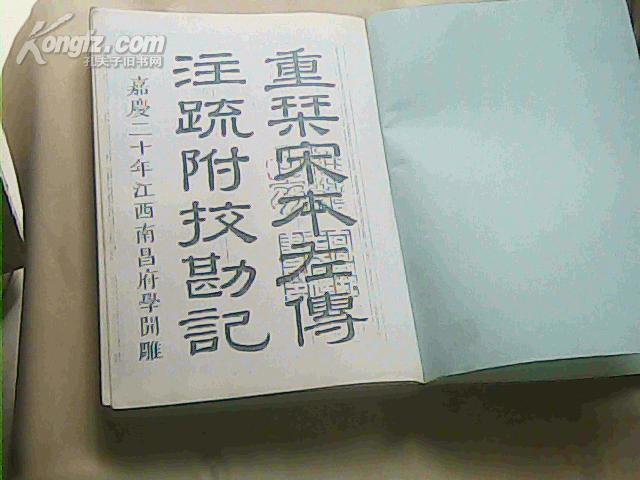 重栞宋本左傳
注疏附挍勘記
嘉慶二十年江西南昌府學開雕
Kongfz.com
孔夫子旧书网